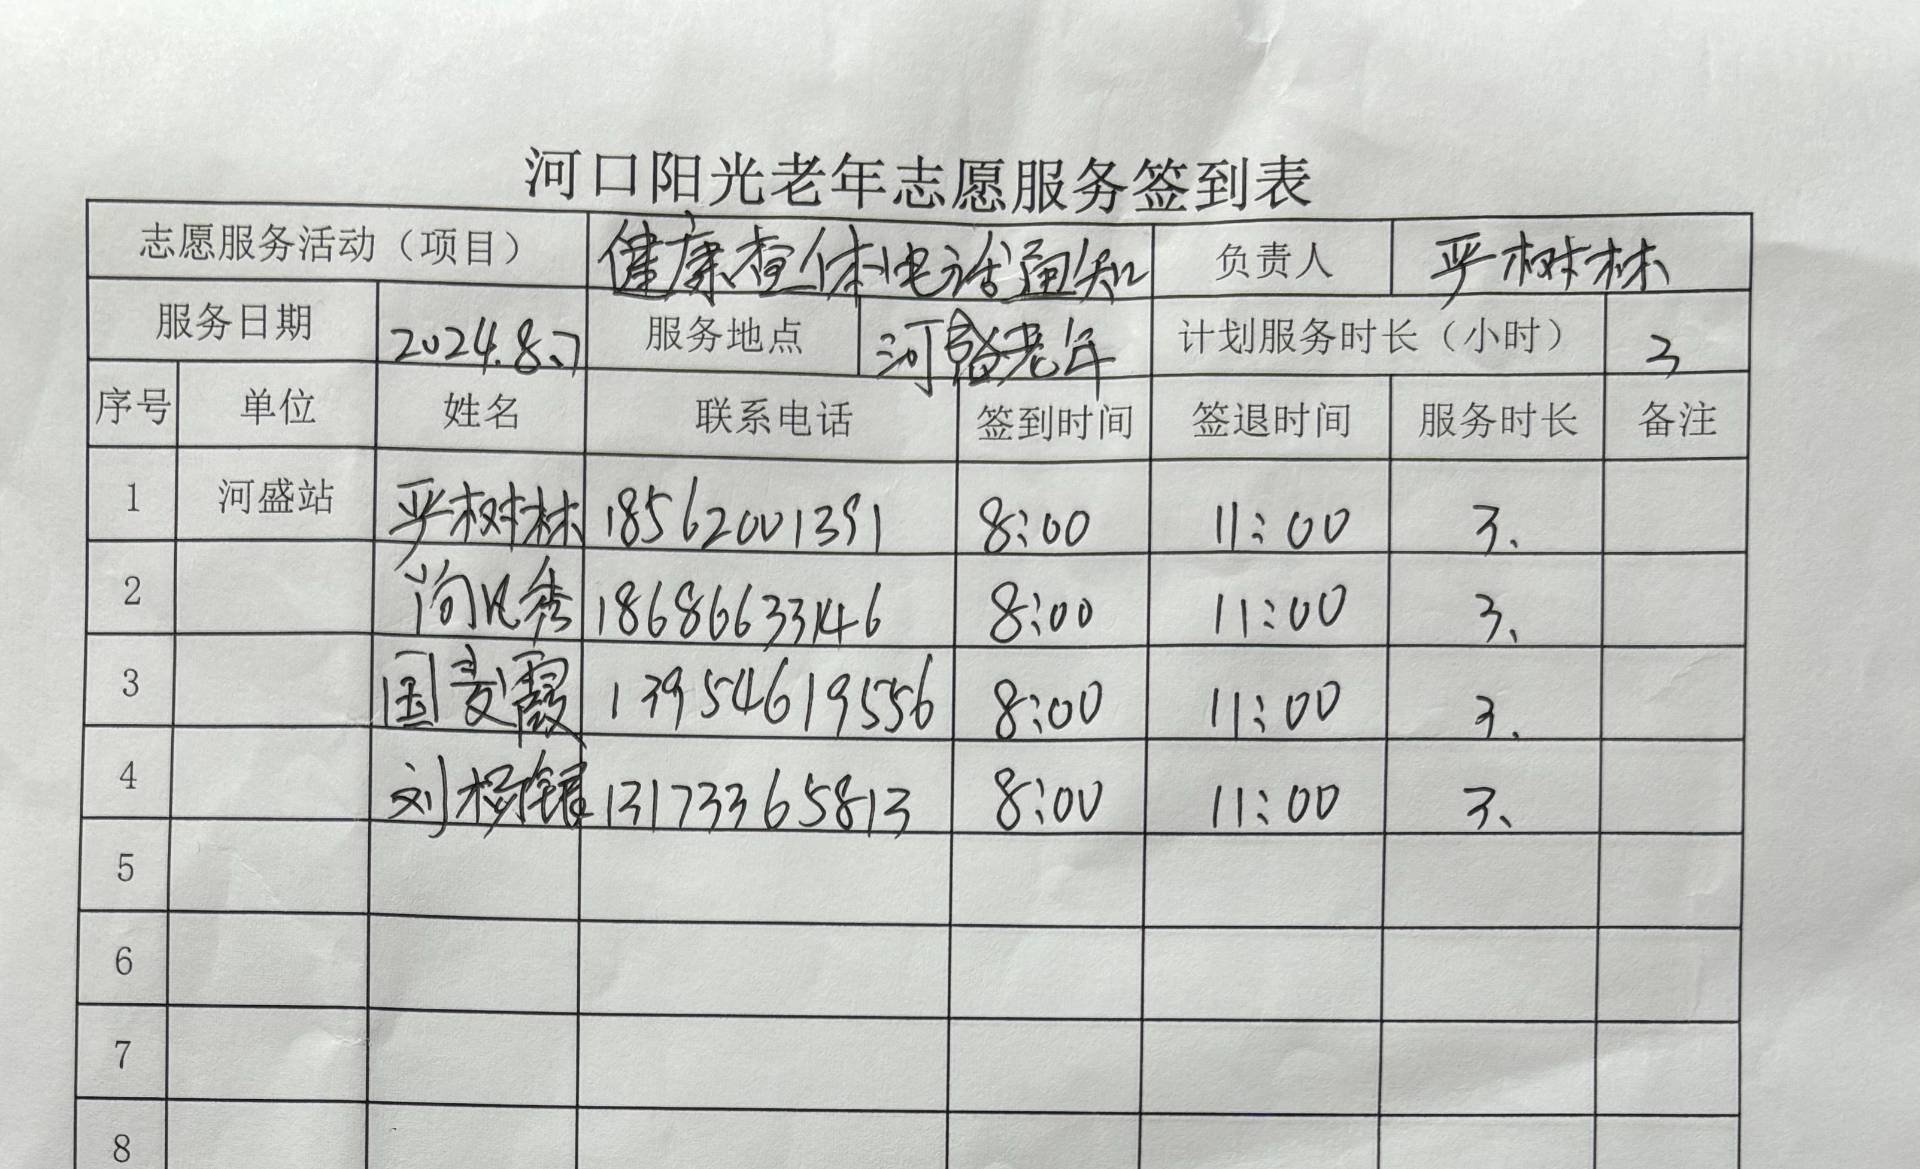 河口阳光老年志愿服务签到表
志愿服务活动（项目） 健康查体电话通知 负责人 严树林
服务日期 2024.8.7 服务地点 河 老年 计划服务时长（小时） 3
序号 单位 姓名 联系电话 签到时间 签退时间 服务时长 备注
1 河盛站 严树林 18562001391 8:00 11:00 3.
2 尚风秀 18686633146 8:00 11:00 3.
3 国麦霞 13954619556 8:00 11:00 3.
4 刘杨 13173365813 8:00 11:00 3.
5
6
7
8